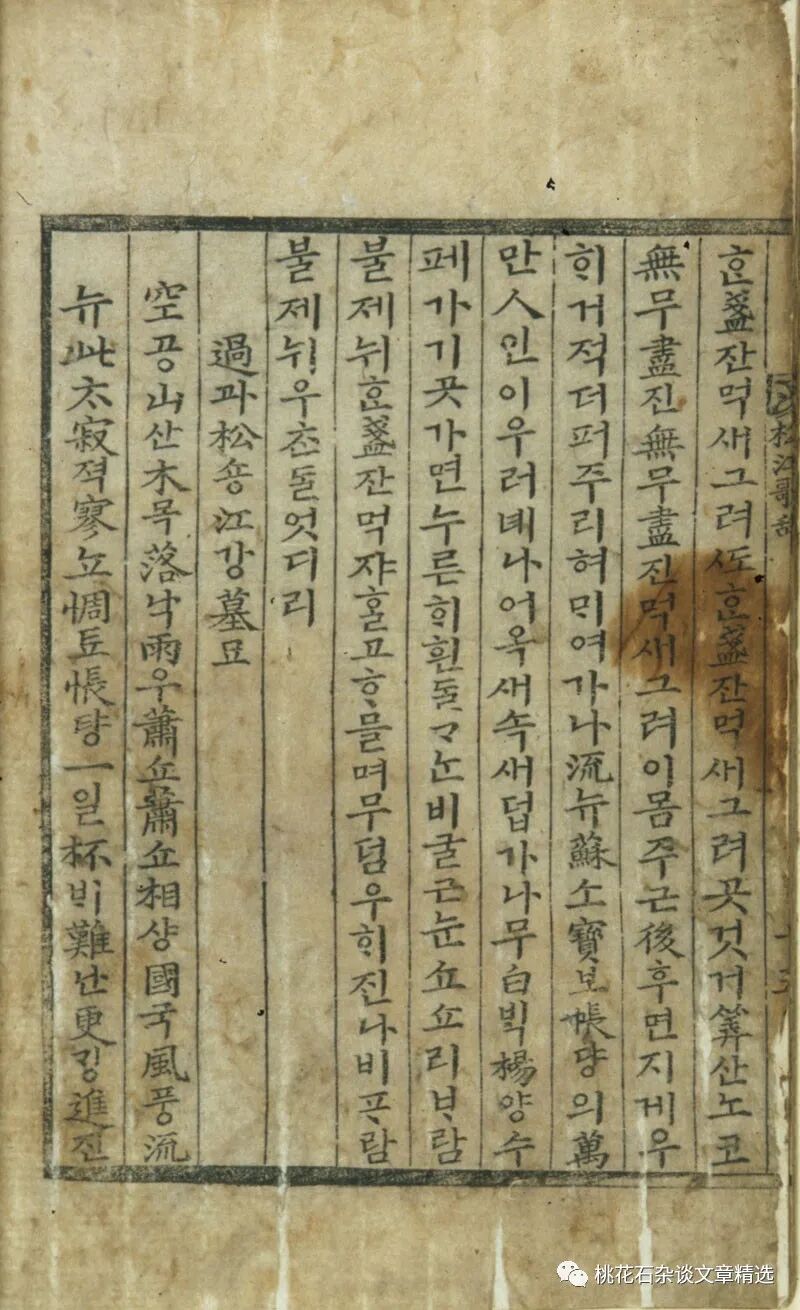 松江哥
ᄒᆞᆫ盞잔먹새그려ᄯᅩᄒᆞᆫ盞잔먹새그려곳것거筭산노코
無무盡진無무盡진먹새그려이몸주근後후면지게우
ᄒᆡ거적더퍼주리혀ᄆᆡ여가나流뉴蘇소寶보帳댱의萬
만人인이우러녜나어옥새속새덥가나무白ᄇᆡᆨ楊양수
페가기곳가면누른ᄒᆡ흰ᄃᆞᆯᄀᆞᄂᆞᆫ비굴근눈쇼쇼리ᄇᆞ람
불제뉘ᄒᆞᆫ盞잔먹쟈ᄒᆞᆯ고ᄒᆞ믈며무덤우ᄒᆡ진나비ᄑᆞ람
불제뉘우ᄎᆞᆫᄃᆞᆯ엇디리
過과松숑江강墓묘
空공山산木목落낙雨우蕭쇼蕭쇼相샹國국風풍流
뉴此ᄎᆞ寂젹寥뇨惆됴悵댱一일杯ᄇᆡ難난更ᄀᆡᆼ進진
桃花石杂谈文章精选